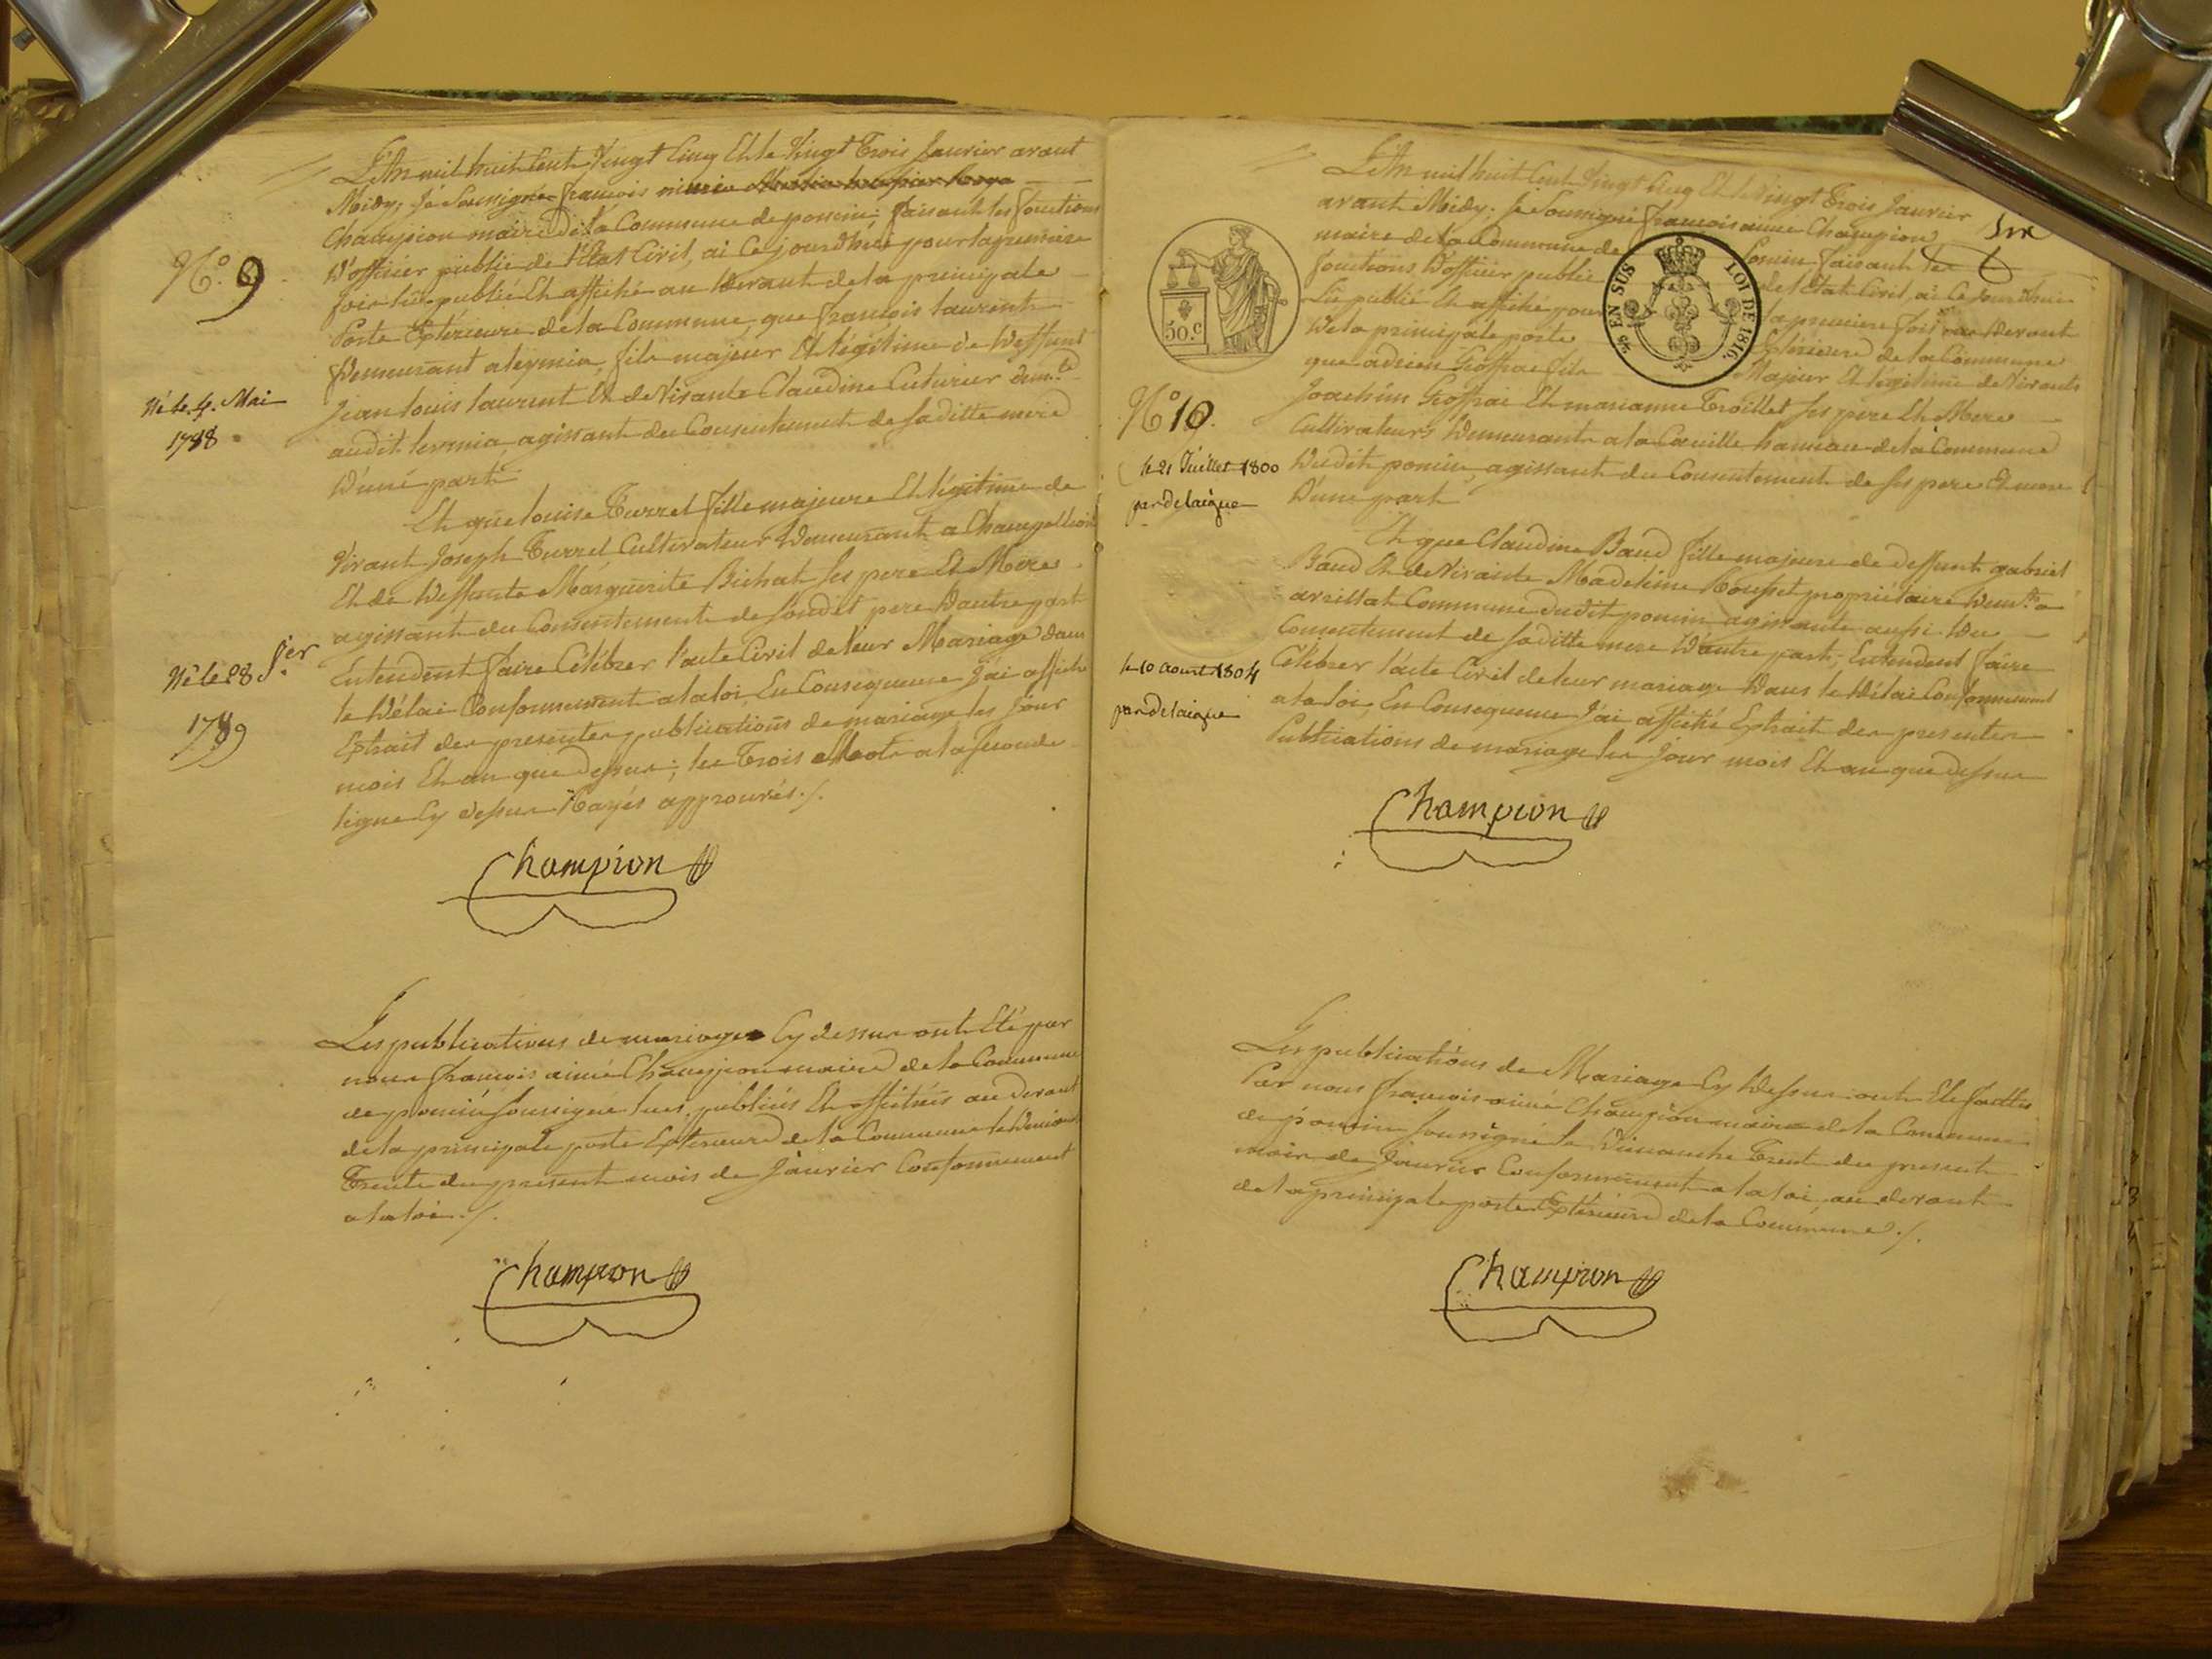 L'An mil huit Cent Vingt Cinq Et le Vingt Trois Janvier avant
Midy, Je Soussigné françois
Champion maire de la Commune de poncin, faisant les fonctions
D'officier public de l'Etat Civil, ai Cejourdhui pour la premiere
fois lû publié Et affiché au devant de la principale
Porte Extérieure de la Commune, que françois laurent
Demeurant a leymia, fils majeur Et légitime de Deffunt
Jean louis laurent Et de Vivante Claudine Cuturier dem.te
audit leymia, agissant du Consentement de sa ditte mere
D'une part
Et que louise Turrel fille majeure Et légitime de
Vivant Joseph Turrel Cultivateur Demeurant a Champollion
Et de Deffunte Marguerite Bichat ses pere Et Mere
agissant du Consentement de sondit pere Dautre part
Entendent faire Célébrer l'acte Civil de leur Mariage dans
le Délai Conformement a la loi, En Consequence J'ai affiché
Extrait des presentes publications de mariage les Jour
mois Et an que Dessus; les Trois Mots a la seconde
ligne Cy dessus Rayés approuvés ./.
N.o 9
Né le 4. Mai
1788
Né le 28 J.er
1789
Champion
Les publications de mariages Cy dessus ont Eté par
nous françois aimé Champion maire de la Commune
de poncin soussigné lues, publiées Et affichées au devant
de la principale porte Exterieure de la Commune le Dimanche
Trente du present mois de Janvier Conformement
a la loi ./.
Champion
L'An mil huit Cent Vingt Cinq Et le Vingt Trois Janvier
avant Midy; Je Soussigné françois aimé Champion
maire de la Commune de Poncin faisant les
fonctions D'officier public de l'Etat Civil, ai Cejourdhui
Lû publié Et affiché pour la premiere fois au devant
De la principale porte Extérieure de la Commune
que adrien Goffrai fils Majeur Et légitime de Vivants
Joachim Goffrai Et marianne Troillet ses pere Et Mere
Cultivateurs Demeurants a la Cueille hameau de la Commune
Dudit poncin, agissant du Consentement de ses pere Et mere
D'une part
Et que Claudine Baud fille majeure de deffunt gabriel
Baud Et de Vivante Madeleine Rousset propriétaire Dem.te a
avrillat Commune dudit poncin agissante aussi Du
Consentement de sa ditte mere Dautre part; Entendent faire
Célébrer l'acte Civil de leur mariage Dans le Délai Conformement
a la loi, En Consequence J'ai affiché Extrait des presentes
Publications de mariage les Jour mois Et an que dessus
50.c
25 EN SUS
LOI DE 1816.
N.o 10.
le 21 Juillet 1800
par Delaigue
le 10 aoust 1804
par Delaigue
Champion
Les publications de Mariage Cy Dessus ont Eté faittes
Par nous françois aimé Champion maire de la Commune
de poncin soussigné le Dimanche Trente du present
mois de Janvier Conformement a la loi, au devant
de la principale porte Extérieure de la Commune ./.
Champion